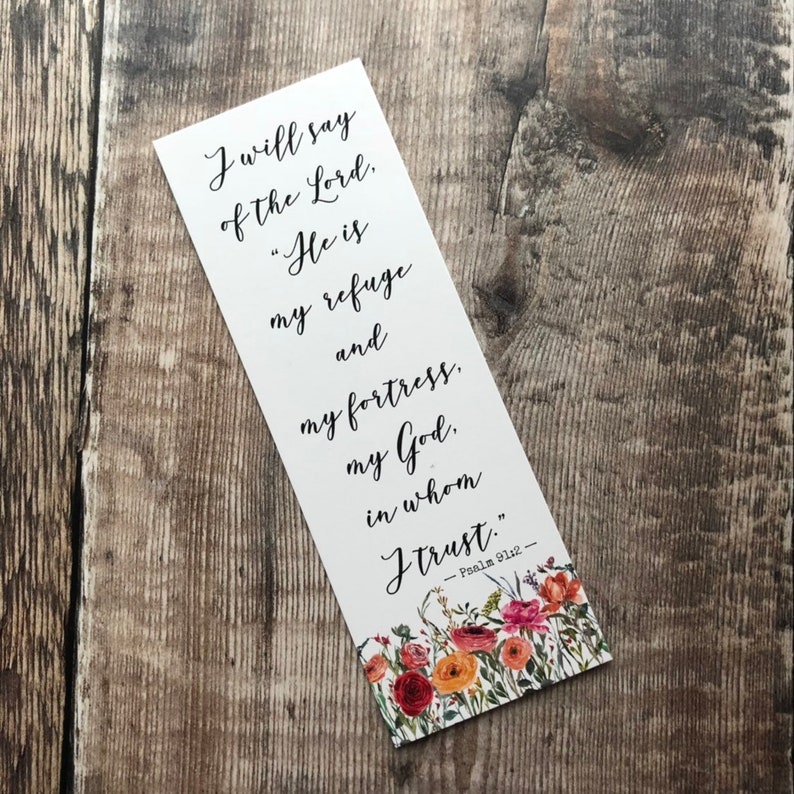 I will say
of the Lord,
"He is
my refuge
and
my fortress,
my God,
in whom
I trust."
— Psalm 91:2 —